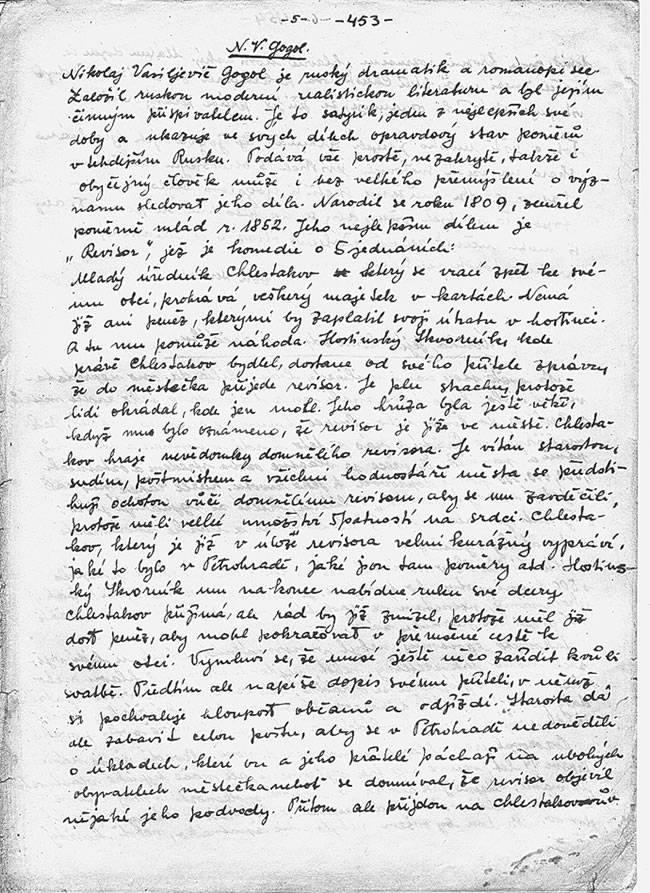 -5- -453-
N. V. Gogol.
Nikolaj Vasiljevič Gogol je ruský dramatik a romanopisec.
Založil ruskou moderní realistickou literaturu a byl jejím
činným přispivatelem. Je to satyrik, jeden z nejlepších své
doby a ukazuje ve svých dílech opravdový stav poměrů
v tehdejším Rusku. Podává vše prostě, nezakrytě, takže i
obyčejný člověk může i bez velkého přemýšlení o výz-
namu sledovat jeho díla. Narodil se roku 1809, zemřel
poměrně mlád r. 1852. Jeho nejlepším dílem je
„Revisor", jež je komedie o 5 jednáních:
Mladý úředník Chlestakov který se vrací zpět ke své-
mu otci, prohrává veškerý majetek v kartách. Nemá
již ani peněz, kterými by zaplatil svoji útratu v hostinci.
A tu mu pomůže náhoda. Hostinský Skvorník, kde
právě Chlestakov bydlel, dostane od svého přítele zprávu,
že do městečka přijede revisor. Je pln strachu, protože
lidi okrádal, kde jen mohl. Jeho hrůza byla ještě větší,
když mu bylo oznámeno, že revisor je již ve městě. Chlesta-
kov hraje nevědomky domnělého revisora. Je vítán starostou,
sudím, poštmistrem a všichni hodnostáři města se předsti-
hují ochotou vůči domnělému revisoru, aby se mu zavděčili,
protože měli velké množství špatností na srdci. Chlesta-
kov, který je již v úloze revisora velmi kurážný vypráví,
jaké to bylo v Petrohradě, jaké jsou tam poměry atd. Hostins-
ký Skvorník mu nakonec nabídne ruku své dcery
Chlestakov přijímá, ale rád by již zmizel, protože měl již
dost peněz, aby mohl pokračovat v přerušené cestě k
svému otci. Vymluví se, že musí ještě něco zařídit kvůli
svatbě. Předtím ale napíše dopis svému příteli, v němž
si pochvaluje hloupost občanů a odjíždí. Starosta dá
ale zabavit celou poštu, aby se v Petrohradě nedověděli
o úkladech, které on a jeho přátelé páchají na ubohých
obyvatelích městečka neboť se domníval, že revisor objevil
nějaké jeho podvody. Přitom ale přijdou na Chlestakovův